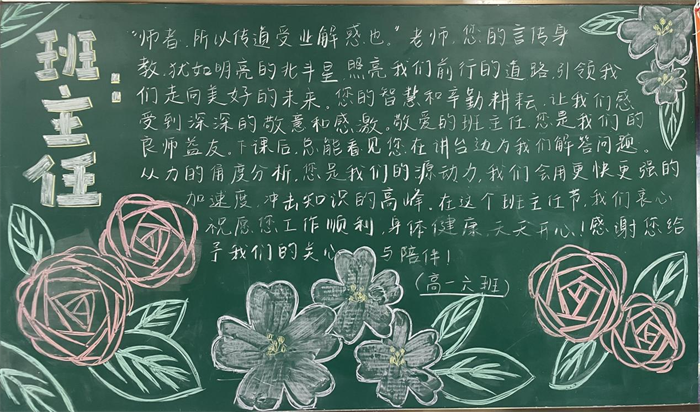 班主任:
“师者,所以传道受业解惑也。”老师,您的言传身
教,犹如明亮的北斗星,照亮我们前行的道路,引领我
们走向美好的未来。您的智慧和辛勤耕耘,让我们感
受到深深的敬意和感激。敬爱的班主任,您是我们的
良师益友。下课后,总能看见您在讲台边为我们解答问题。
从力的角度分析,您是我们的源动力,我们会用更快更强的
加速度,冲击知识的高峰。在这个班主任节,我们衷心
祝愿您工作顺利,身体健康,天天开心!感谢您给
予我们的关心与陪伴!
(高一六班)